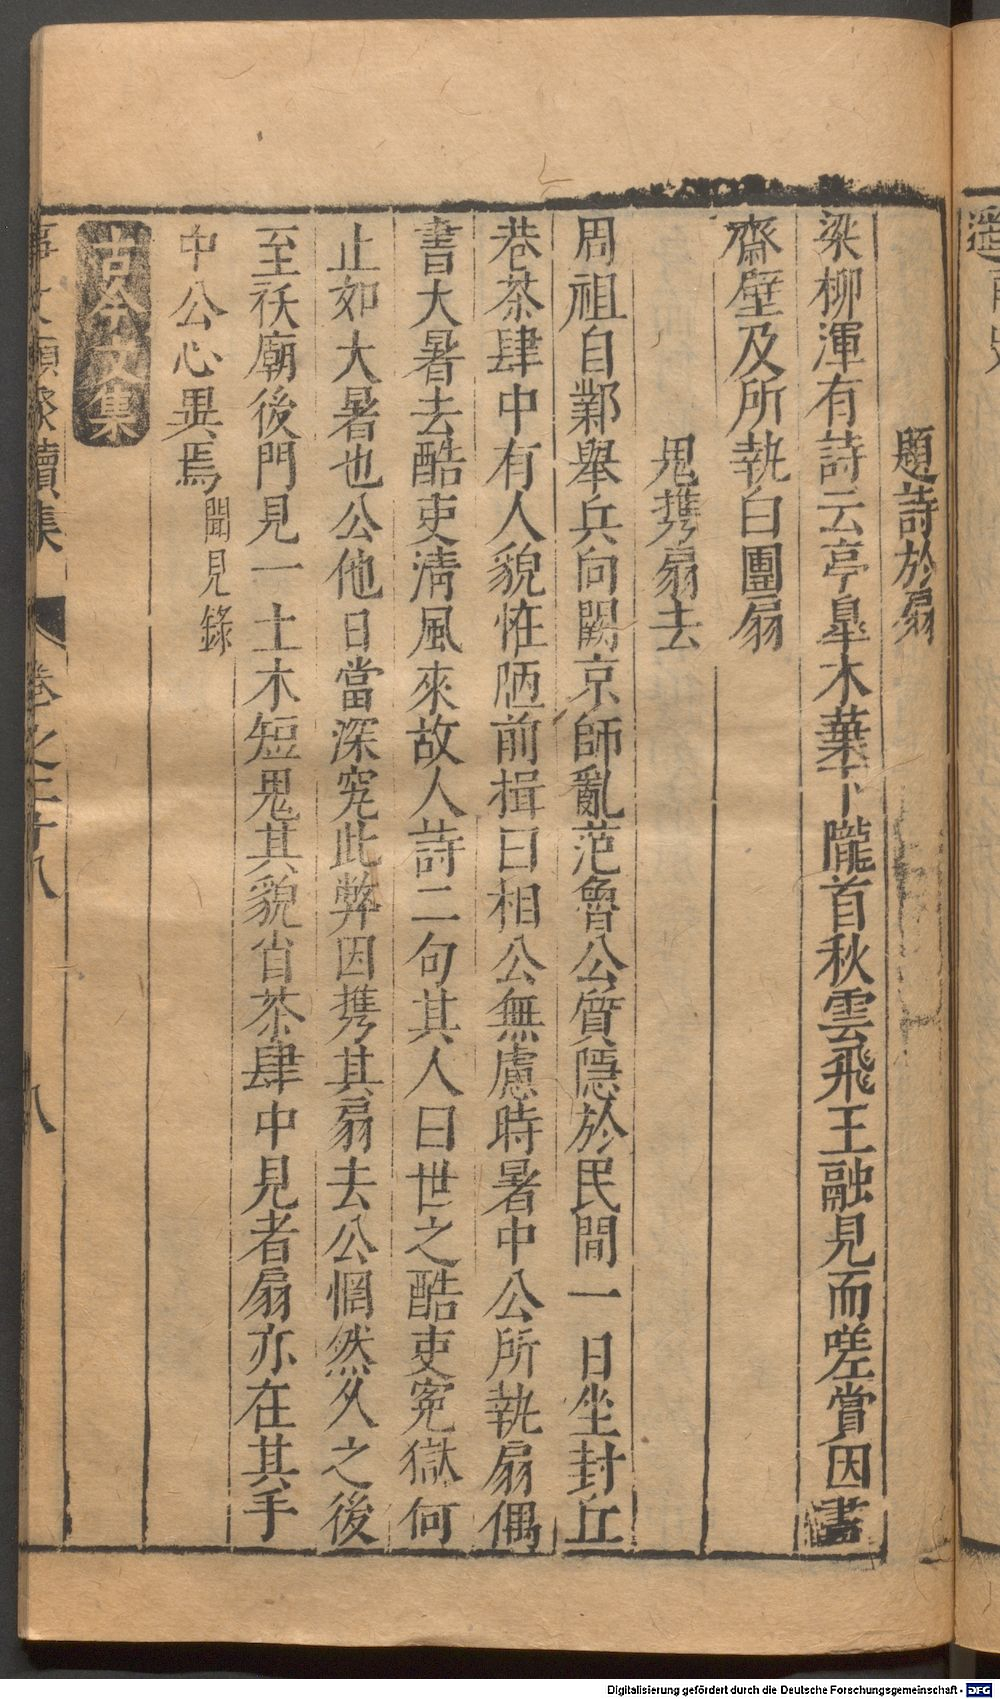 題詩於扇
梁柳渾有詩云亭臯木葉下隴首秋雲飛王融見而嗟賞因書
齋壁及所執白團扇
鬼携扇去
周祖自鄴舉兵向闕京師亂范魯公質隱於民間一日坐封丘
巷茶肆中有人貌恠陋前揖曰相公無慮時暑中公所執扇偶
書大暑去酷吏淸風來故人詩二句其人曰世之酷吏寃獄何
止如大暑也公他日當深究此弊因携其扇去公惘然久之後
至祅廟後門見一土木短鬼其貌肖茶肆中見者扇亦在其手
中公心異焉聞見錄
古今文集
事文類聚續集 卷之二十八 八
Digitalisierung gefördert durch die Deutsche Forschungsgemeinschaft - DFG